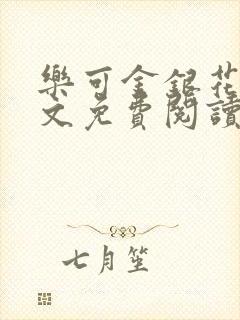 樂可金銀花
文免費閱讀
七月笙